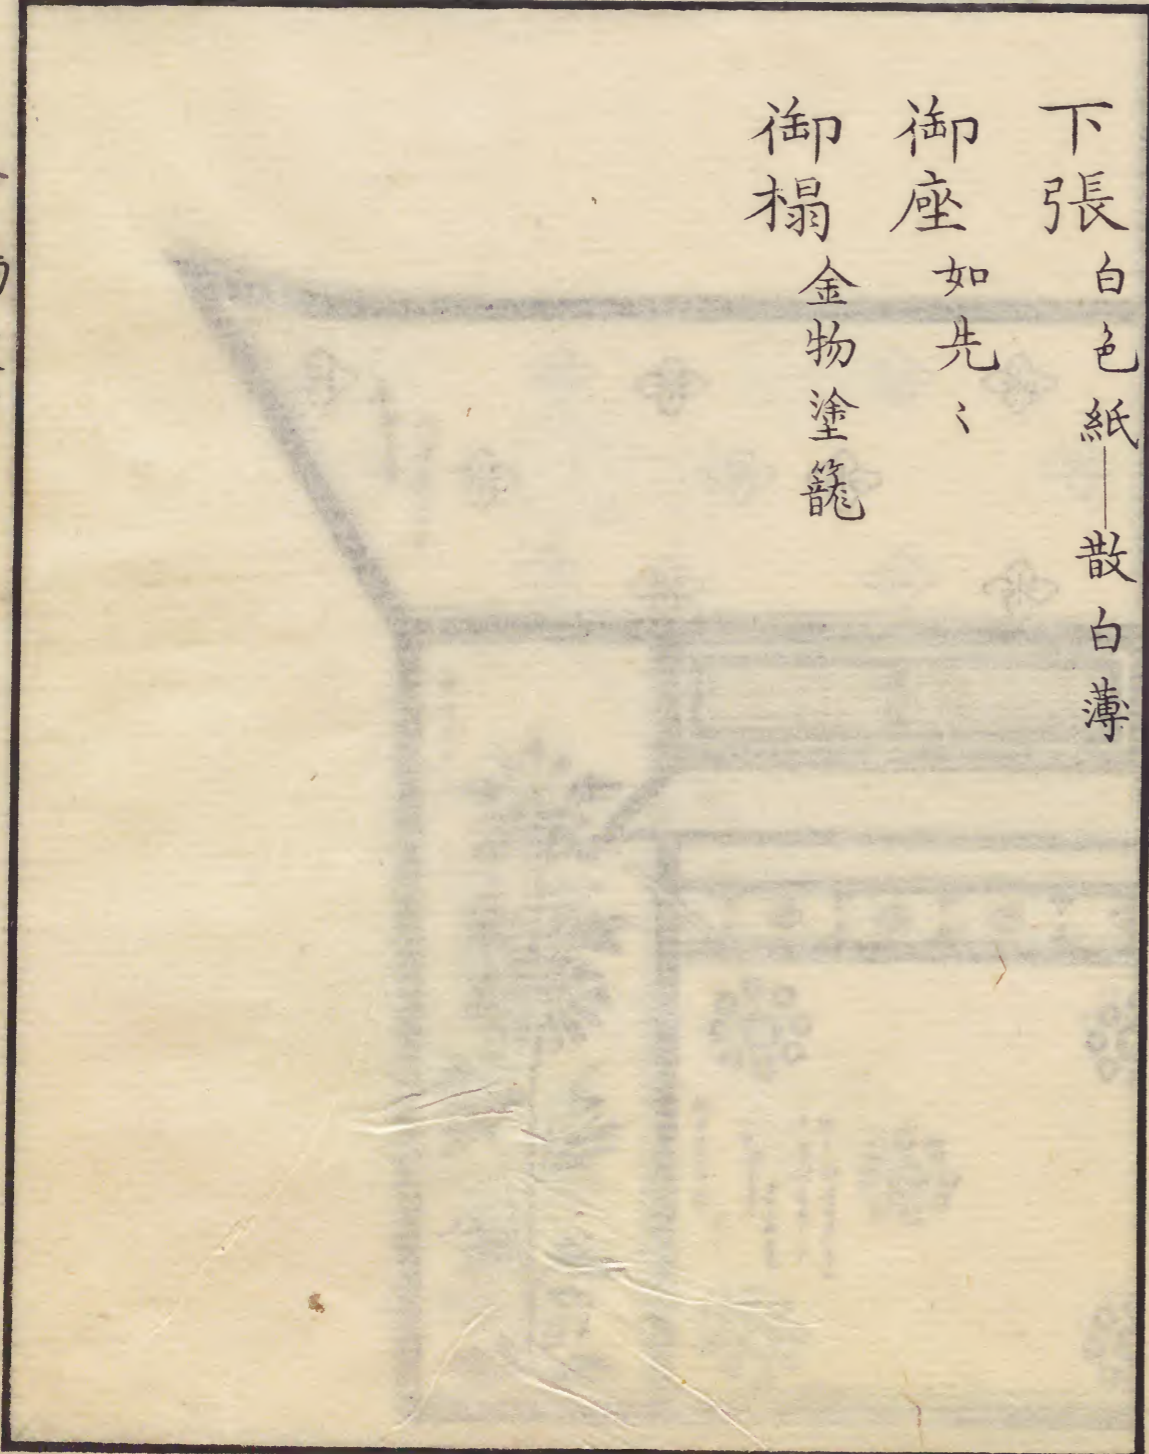 下張白色紙—散白薄
御座如先〻
御榻金物塗籠